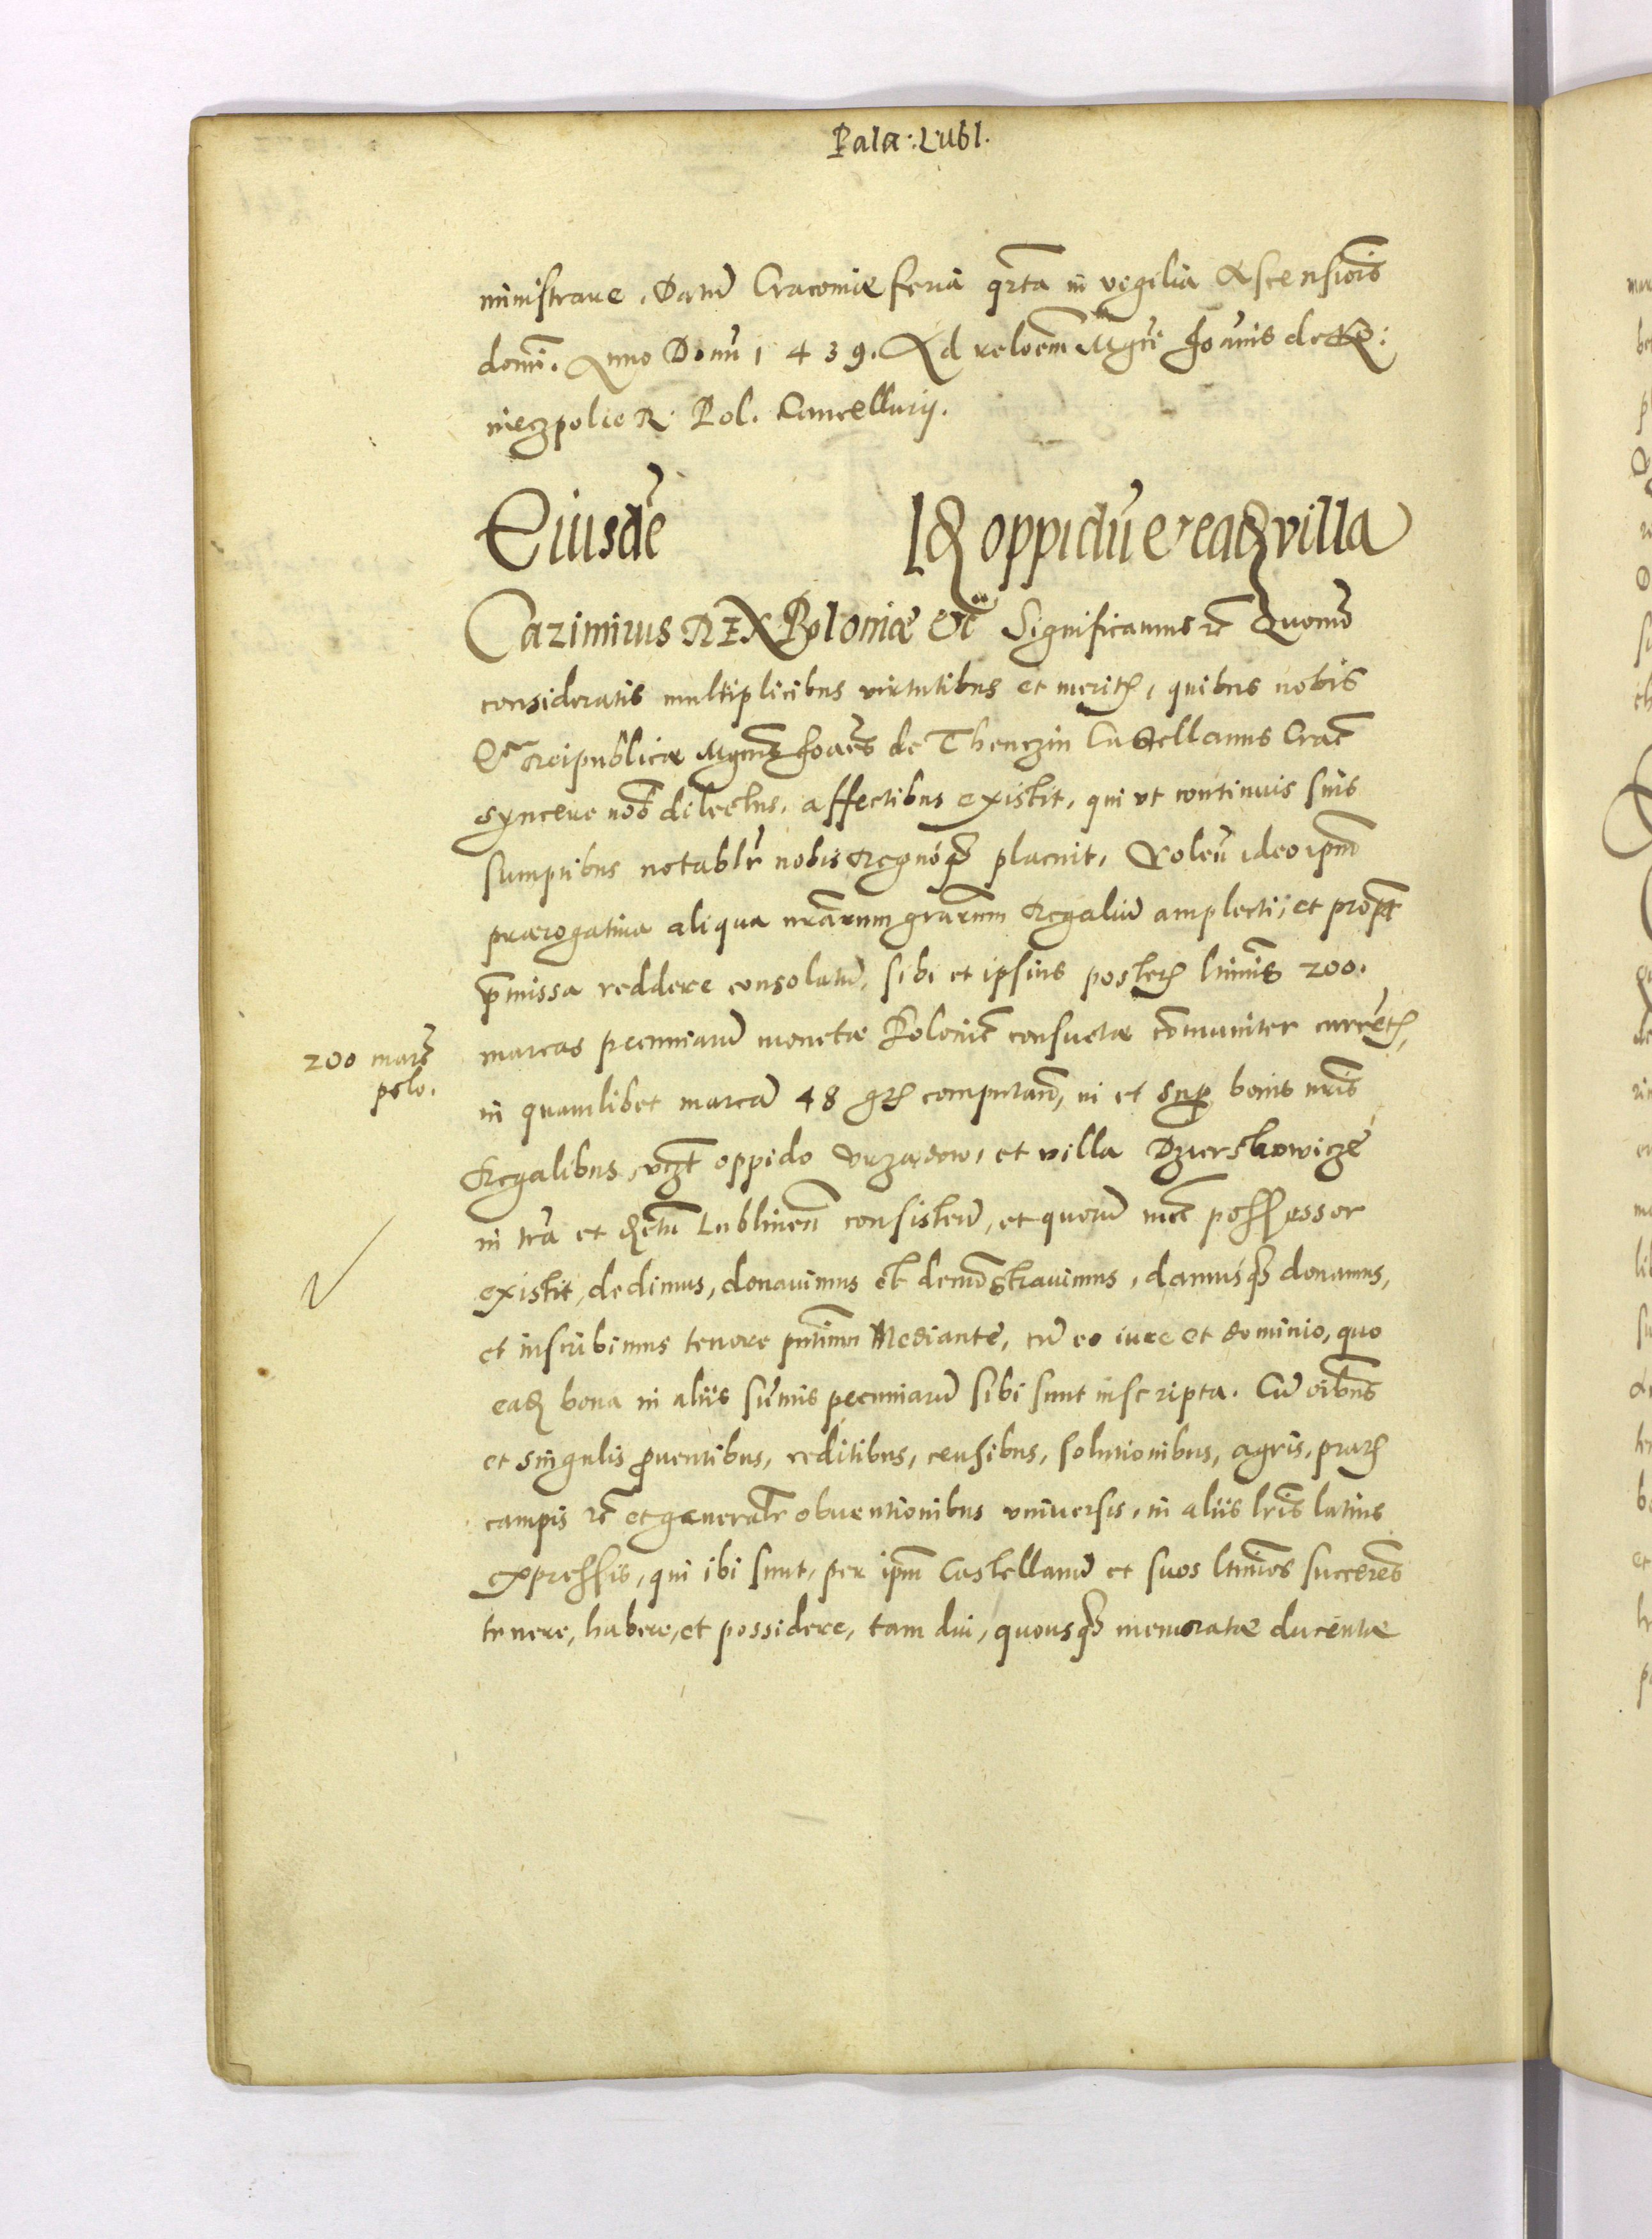 Pala: Lubl.
ministrare. Datū Cracoviæ feria qrta in vigilia Ascensiōis
domī. Anno Domī 1439. Ad relōem Mgcī Joānis de Ko:
nieczpolie R. Pol. Cancellarij.
Eiusdē Id oppidū et ead villa
Cazimirus REX Poloniæ etc Significamus etc Quomō
consideratis multiplicibus virtutibus et meritis, quibus nobis
et Reipublicæ Mgcus Joāes de Thenczin Castellanus Crac
syncere nob dilectus, affectibus existit, qui ut continuis suis
sumptibus notablr nobis Regnoq placuit, Volen ideo ipm
prærogativa aliqua nrarum grarum Regaliū amplecti, et propt
pmissa reddere consolatū, sibi et ipsius posteris ltimis 200.
200 marc
polo.
marcas pecuniarū monetæ Polonic consuetæ cōmuniter currētis,
in quamlibet marcā 48 grs computan, in et sup bonis nris
Regalibus, vczt oppido Vrzędow, et villa Dzierzkowicze
in tra et distu Lublinen consisten, et quorū nūc possessor
existit, dedimus, donavimus et demōstravimus, damusq donamus,
et inscribimus tenore pntium Mediante, cū eo iure et dominio, quo
ead bona in aliis sūmis pecuniarū sibi sunt inscripta. Cū oibus
et singulis proventibus, reditibus, censibus, solutionibus, agris, pratis
campis etc et generalr obventionibus universis, in aliis lris latius
expressis, qui ibi sunt, per ipm Castellanū et suos ltimos succeres
tenere, habere, et possidere, tam diu, quousq memoratæ ducentæ